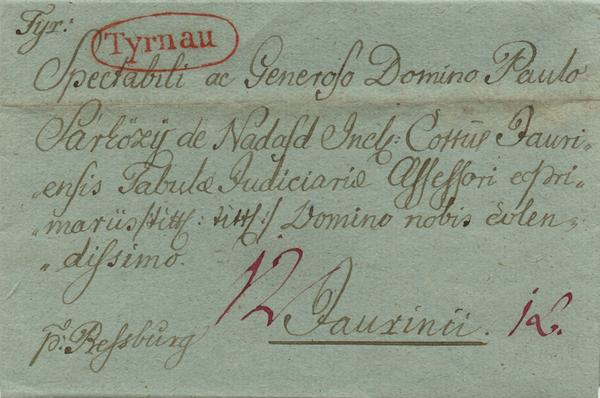 Tyr:
Tyrnau
Spectabili ac Generoso Domino Paulo
Sárközÿ de Nadasd Incl: Cottûs Jauri„
„ensis Tabulæ Judiciariæ Assessori
„mariis /titt: titt:/ Domino nobis colen„
„dissimo.
12
Jaurinii. 12.
p: Pressburg